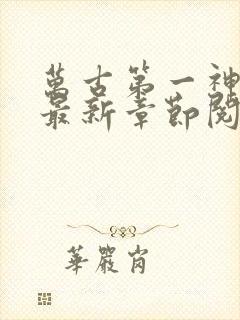 萬古第一神
最新章節閱
華嚴肖